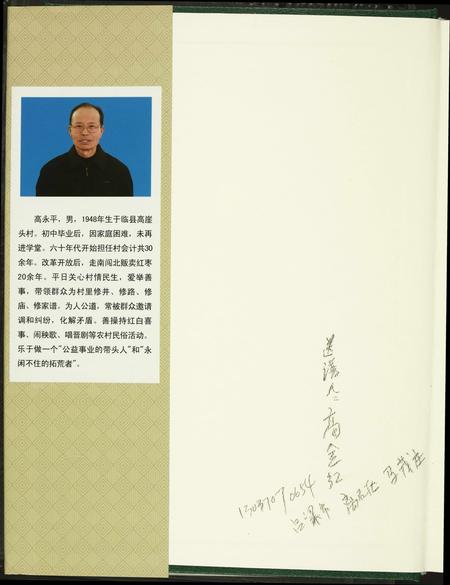 高永平，男，1948年生于临县高崖
头村。初中毕业后，因家庭困难，未再
进学堂。六十年代开始担任村会计共30
余年。改革开放后，走南闯北贩卖红枣
20余年。平日关心村情民生，爱举善
事，带领群众为村里修井、修路、修
庙、修家谱。为人公道，常被群众邀请
调和纠纷，化解矛盾。善操持红白喜
事、闹秧歌、唱晋剧等农村民俗活动。
乐于做一个"公益事业的带头人"和"永
闲不住的拓荒者"。
高金红
13037070654
吕梁市